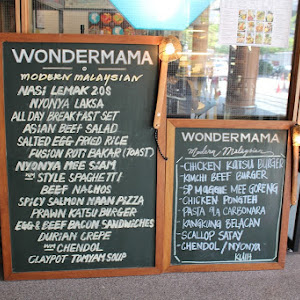 WONDERMAMA
MODERN MALAYSIAN
NASI LEMAK 2OS
NYONYA LAKSA
ALL DAY BREAKFAST SET
ASIAN BEEF SALAD
SALTED EGG FRIED RICE
FUSION ROTI BAKAR (TOAST)
NYONYA MEE SIAM
STYLE SPAGHETTI
BEEF NACHOS
SPICY SALMON NAAN PIZZA
PRAWN KATSU BURGER
EGG & BEEF BACON SANDWICHES
DURIAN CREPE
CHENDOL
CLAYPOT TOMYAM SOUP
WONDERMAMA
Modern Malaysian
- CHICKEN KATSU BURGER
- KIMCHI BEEF BURGER
- SP MAGGIE MEE GORENG
- CHICKEN PONGTEH
- PASTA ALA CARBONARA
- KANGKUNG BELACAN
- SCALLOP SATAY
- CHENDOL / NYONYA
KUIH